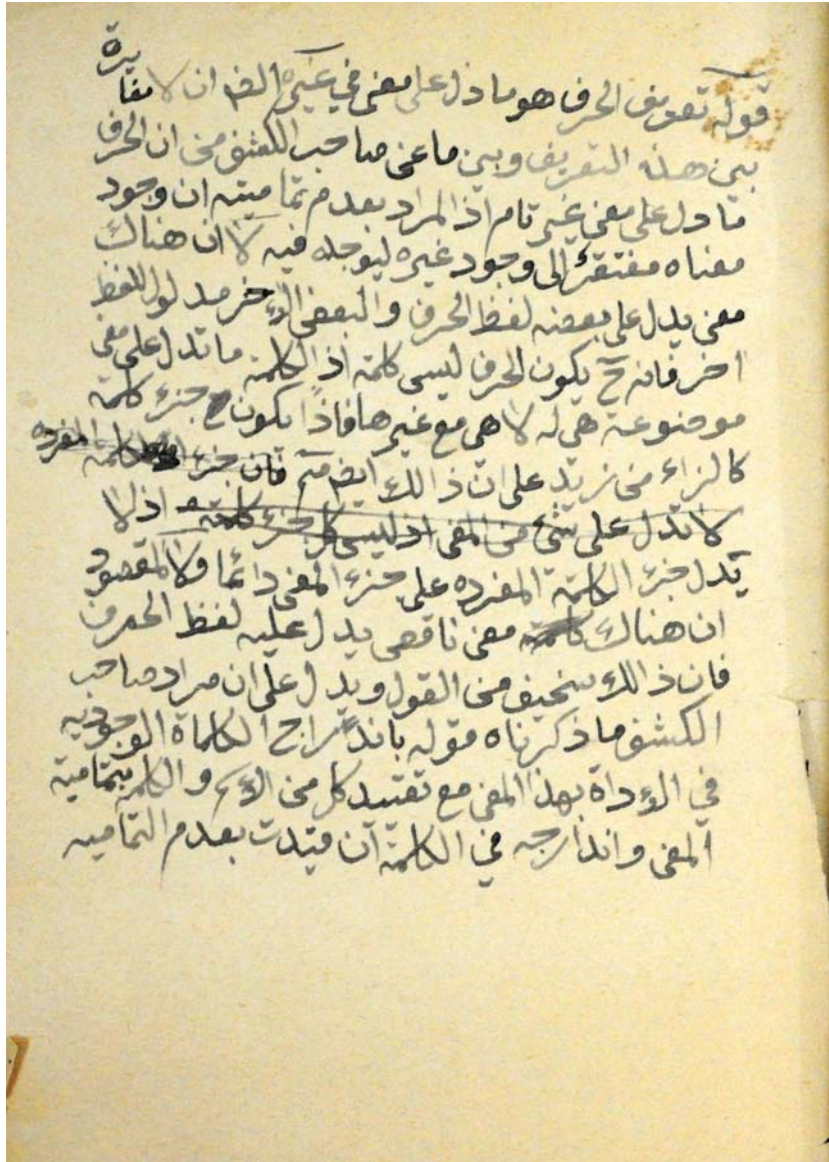 قوله تعريف الحرف هو ما دل على معنى في غيره الخ ان لا مغايرة
بين هذه التعريف وبين ما عن صاحب الكشف من ان الحرف
ما دل على معنى غير تام اذ المراد بعدم تماميته ان وجود
معناه مفتقر الى وجود غيره ليوجد فيه لا ان هناك
معنى يدل على بعضه لفظ الحرف والبعض الاخر مدلول للفظ
اخر فانه ح يكون الحرف ليس كلمة اذ الكلمة ما تدل على معنى
موضوعة هي له لا هي مع غيرها فاذا يكون ح جزء كلمة
كالزاء من زيد على ان ذالك ايضا فان جزء الكلمة المفرده
لا تدل على شئ من المعنى اذ ليس كل جزء كلمة اذ لا
يدل جزء الكلمة المفرده على جزء المعنى دائما ولا المقصود
ان هناك معنى ناقص يدل عليه لفظ الحرف
فان ذالك سخيف من القول ويدل على ان مراد صاحب
الكشف ما ذكرناه قوله باندراج الكلماة الوجوديه
في الاداة بهذا المعنى مع تقييد كل من الاسم والكلمه بتمامية
المعنى واندارجه في الكلمة ان قيدت بعدم التماميه